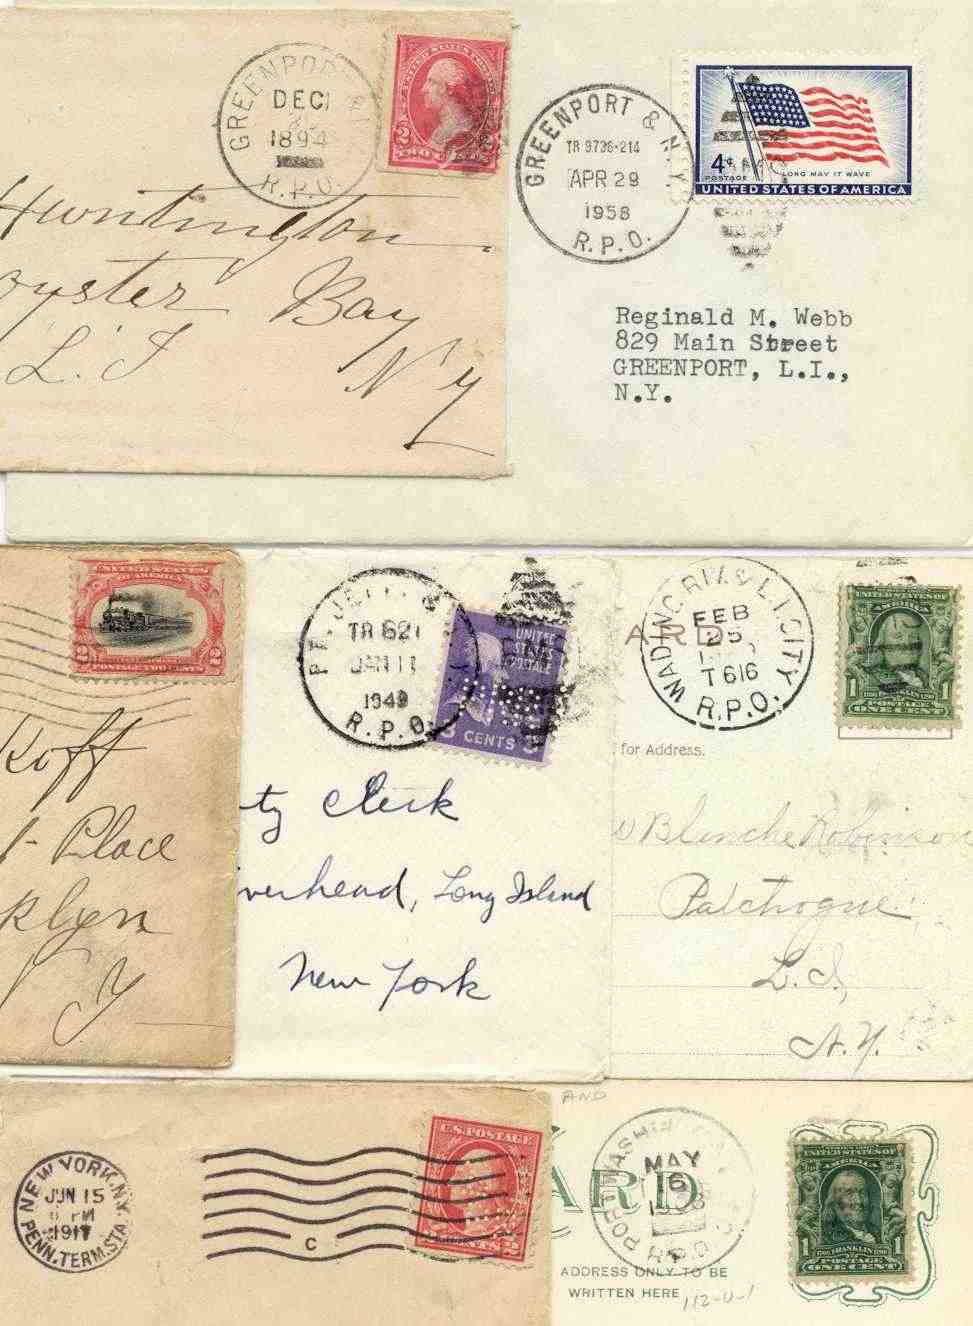 GREENPORT
DEC
1894
R.P.O.
UNITED STATES POSTAGE
2
TWO
Huntington
Oyster Bay
L. I
N Y
GREENPORT & N.Y.
TR 9736-214
APR 29
1958
R.P.O.
4¢
POSTAGE
LONG MAY IT WAVE
UNITED STATES OF AMERICA
Reginald M. Webb
829 Main Street
GREENPORT, L.I.,
N.Y.
UNITED STATES
OF AMERICA
2 2
POSTAGE TWO CENTS
Koff
Place
klyn
Y
TR 621
JAN 11
1949
R.P.O.
UNITED
STATES
POSTAGE
3 CENTS 3
ty Clerk
verhead, Long Island
New York
ARD
WADING RIV. & L.I.CITY
FEB
25
T 616
R.P.O.
SERIES 1902
UNITED STATES OF
AMERICA
1 1
FRANKLIN
POSTAGE
ONE CENT
for Address.
Blanche Robinson
Patchogue
L.I.,
N.Y.
NEW YORK, N.Y.
JUN 15
PM
1917
PENN. TERM. STA.
C
U.S. POSTAGE
2
AND
ARD
PORT WASHIN
MAY
6
R.P.O.
SERIES 1902
UNITED STATES OF
AMERICA
1 1
1706 FRANKLIN 1790
POSTAGE
ONE CENT
ADDRESS ONLY TO BE
WRITTEN HERE
112-U-1